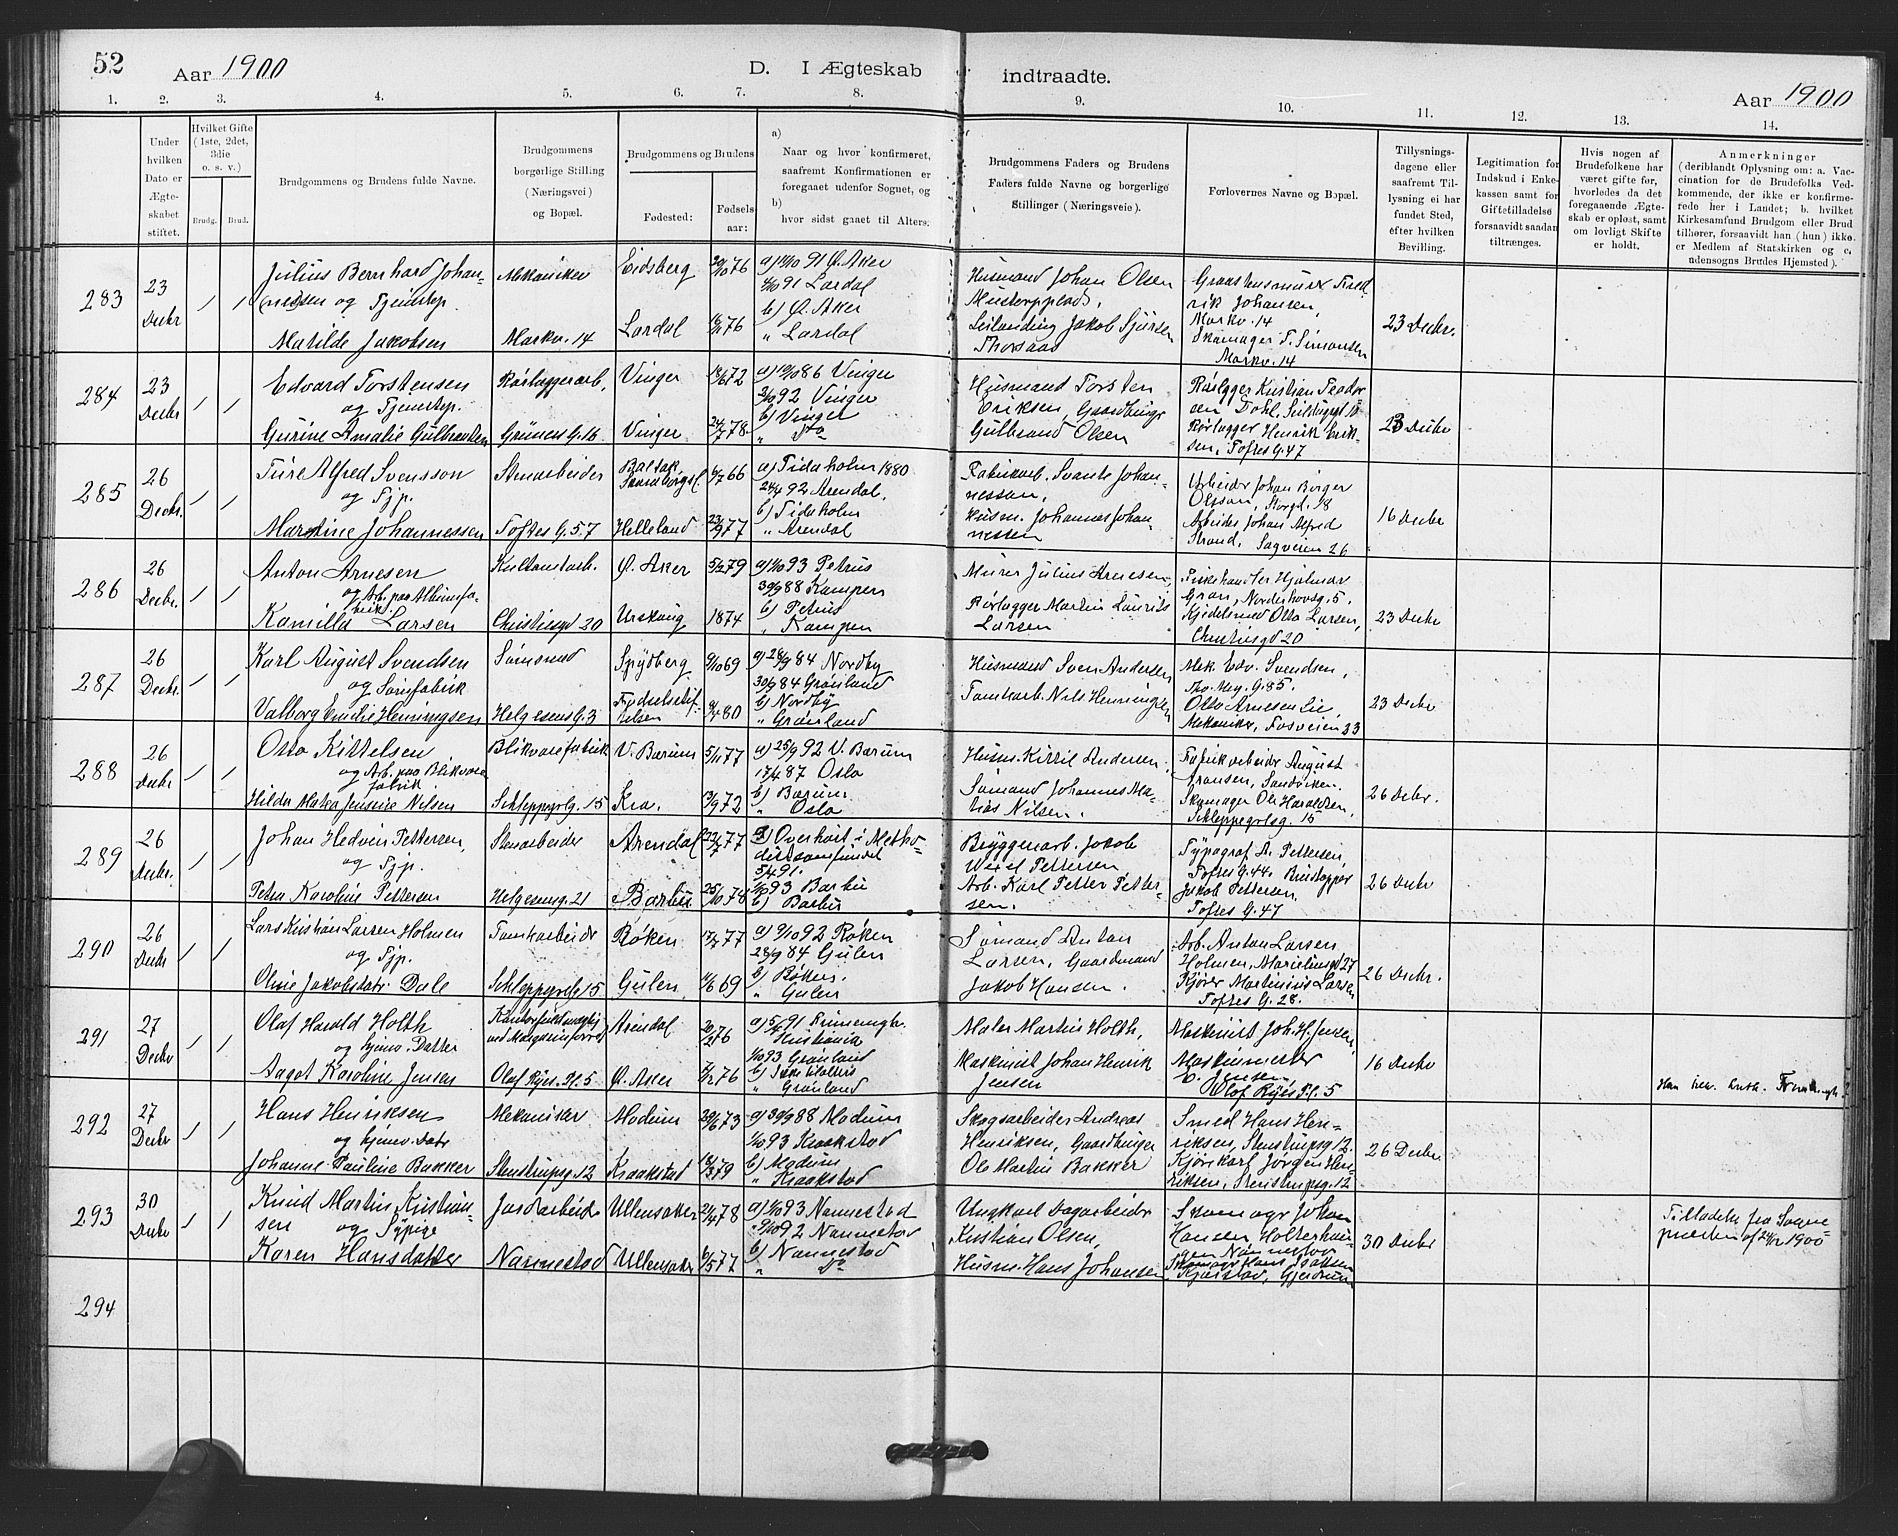 52
Aar 1900
D. I Ægteskab
indtraadte.
Aar 1900
1. 2. 3. 4. 5. 6. 7. 8. 9. 10. 11. 12. 13. 14.
Under hvilken Dato er Ægteskabet stiftet.
Hvilket Gifte (1ste, 2det, 3die o. s. v.)
Brudg. Brud.
Brudgommens og Brudens fulde Navne.
Brudgommens borgerlige Stilling (Næringsvei) og Bopæl.
Brudgommens og Brudens
Fødested:
Fødsels aar:
a) Naar og hvor konfirmeret, saafremt Konfirmationen er foregaaet udenfor Sognet, og
b) hvor sidst gaaet til Alters.
Brudgommens Faders og Brudens Faders fulde Navne og borgerlige Stillinger (Næringsveie).
Forlovernes Navne og Bopæl.
Tillysningsdagene eller saafremt Tillysning ei har fundet Sted, efter hvilken Bevilling.
Legitimation for Indskud i Enkekassen samt for Giftetilladelse forsaavidt saadan tiltrænges.
Hvis nogen af Brudefolkene har været gifte før, hvorledes da det foregaaende Ægteskab er opløst, samt om lovligt Skifte er holdt.
Anmerkninger (deriblandt Oplysning om: a. Vaccination for de Brudefolks Vedkommende, der ikke er konfirmerede her i Landet; b. hvilket Kirkesamfund Brudgom eller Brud tilhører, forsaavidt han (hun) ikke er Medlem af Statskirken og c. udensogns Brudes Hjemsted).
283
23 Decbr
Julius Bernhard Johannessen og Tjenestep.
Matilde Jakobsen
Mekaniker
Markv. 14
Eidsberg
Lardal
a) 91 Ø. Aker
91 Lardal
b) Ø. Aker
" Lardal
Husmand Johan Olsen
Jakob
Fredrik Johansen,
Markv. 14
Skomager F. Simonsen
Markv. 14
23 Decbr.
284
23 Decbr
Edvard Torstensen
og Tjenestep.
Gurine Amalie Gulbrandsen
Rørlæggerarb,
Grüners G. 16
Vinger
Vinger
a) 86 Vinger
92 Vinger
b) Vinger
" Do
Husmand Torsten
Eriksen, Gaardbruger
Gulbrand Olsen
Rørlægger Kristian
Rørlægger Henrik Eriksen, Toftes G. 47
23 Decbr
285
26 Decbr.
Ture Alfred Svensson
og Tjp.
Martine Johannessen
Stenarbeider
Toftes G. 57
Helleland
6/7 66
23/9 77
a) Tidaholm 1880
24/4 92 Arendal.
b) Tidaholm
" Arendal
Fabrikarb. Svante Johannesson,
Husm. Johannes Johannessen
Arbeider Johan Birger
Olsson, Storgd. 18
Arbeider Johan Alfred
Strand, Sagveien 26
16 Decbr
286
26 Decbr.
Anton Arnesen
og Arb. paa Albumfabrik
Kamilla Larsen
Christiesgd 20
Ø. Aker
Urskoug
5/2 79
1874
a) 93 Petrus
30/9 88 Kampen
b) Petrus
" Kampen
Murer Julius Arnesen,
Rørlægger Martin Laurits
Larsen
Fiskehandler Hjalmar
Gran, Norderhovsg. 5.
Kjedelsmed Otto Larsen,
Christiesgd 20
23 Decbr
287
26 Decbr.
Karl August Svendsen
og Sømfabrik
Valborg Emilie Henningsen
Sømsmed
Helgesens G. 3
Spydberg
Fødselsstiftelsen
9/10 69
80
a) 28/9 84 Nordby
30/9 84 Grønland
b) Nordby
" Grønland
Husmand Sven Andersen
Tomtearb. Nils Henningsen
Mek. Edv. Svendsen,
Tho. Mey. G. 85.
Otto Arnesen Lie
Mekaniker, Fosveien 23
23 Decbr
288
26 Decbr
Otto Kittelsen
og Arb. paa Blikvarefabrik.
Hilda Nilsen
Blikvarefabrik
Schleppegrlg. 15
V. Bærum
Kra.
5/11 77
9 72
a) 25/9 92 V. Bærum
17/4 87 Oslo
b) Bærum
" Oslo
Husm. Kittil Andersen,
Sømand Johannes Matias Nilsen.
Fabrikarbeider August
Fransen, Sandviken.
Skomager Ole Haraldsen,
Schleppegrlsg. 15
26 Decbr.
289
26 Decbr.
Johan Hedvin Pettersen,
og Tjp.
Petra Karoline Pettersen
Stenarbeider
Helgesensg. 21
Arendal
Barbu
23/7 77
25/10 78
a) Overhørt i Methodistsamfundet
5/4 91.
93 Barbu
b) Barbu
Bryggerarb. Jakob
Wexel Pettersen
Arb. Karl Petter Pettersen.
Typograf A. Pettersen,
Toftes G. 44.
Jakob Pettersen,
Toftes G. 47
26 Decbr
290
26 Decbr
Lars Kristian Larsen Holmen
og Tjp.
Oline Jakobsdatr. Dale
Tomtearbeider
Schleppegrlsg 15
Røken
Gulen
17/2 77
11/6 69
a) 9/10 92 Røken
28/9 84 Gulen
b) Røken.
" Gulen
Sømand Anton
Larsen, Gaardmand
Jakob Hansen.
Arb. Anton Larsen
Holmen, Marielundsgd 27
Kjører Martinius Larsen
Toftes G. 28.
26 Decbr.
291
27 Decbr
Olaf Harald Holth
og hjmv. Datter
Aagot Karoline Jensen
Kontorfuldmægtig
Olaf Ryes Pl. 5
Arendal
Ø. Aker
76
76
a) 91
Kristiania
93 Grønland
b)
" Grønland
Maler Martin Holth,
Maskinist Johan Henrik
Jensen
Maskinist Joh. H. Jensen,
Maskinmester
E. Jensen
Olaf Ryes Pl. 5
16 Decbr
292
27 Decbr
Hans Henriksen
og hjmv. Datr
Johanne Pauline Bakker
Mekaniker
Stenstrupsg. 12
Modum
Kraakstad
73
79
a) 30/9 88 Modum
93 Kraakstad
b) Modum
" Kraakstad
Skogsarbeider Andreas
Henriksen, Gaardbruger
Ole Martin Bakker
Smed Hans Henriksen, Stenstrupsg 12.
Kjørekarl Jørgen Henriksen, Stenstrupsg. 12
26 Decbr
293
30 Decbr
Knud Martin Kristiansen
og Sypige
Karen Hansdatter
Jordarbeider
Nannestad
Ullensaker
Ullensaker
78
6/5 77
a) 93 Nannestad
" 9/10 92 Nannestad
b) Nannestad
" Do
Ungkarl Dagarbeider
Kristian Olsen,
Husm. Hans Johansen
Skomagr Johan
Hansen Holterhaugen Nannestad
Skomager Hans Isaksen
Gjerdrum
30 Decbr
Tilladelse fra Sognepræsten af 1900
294